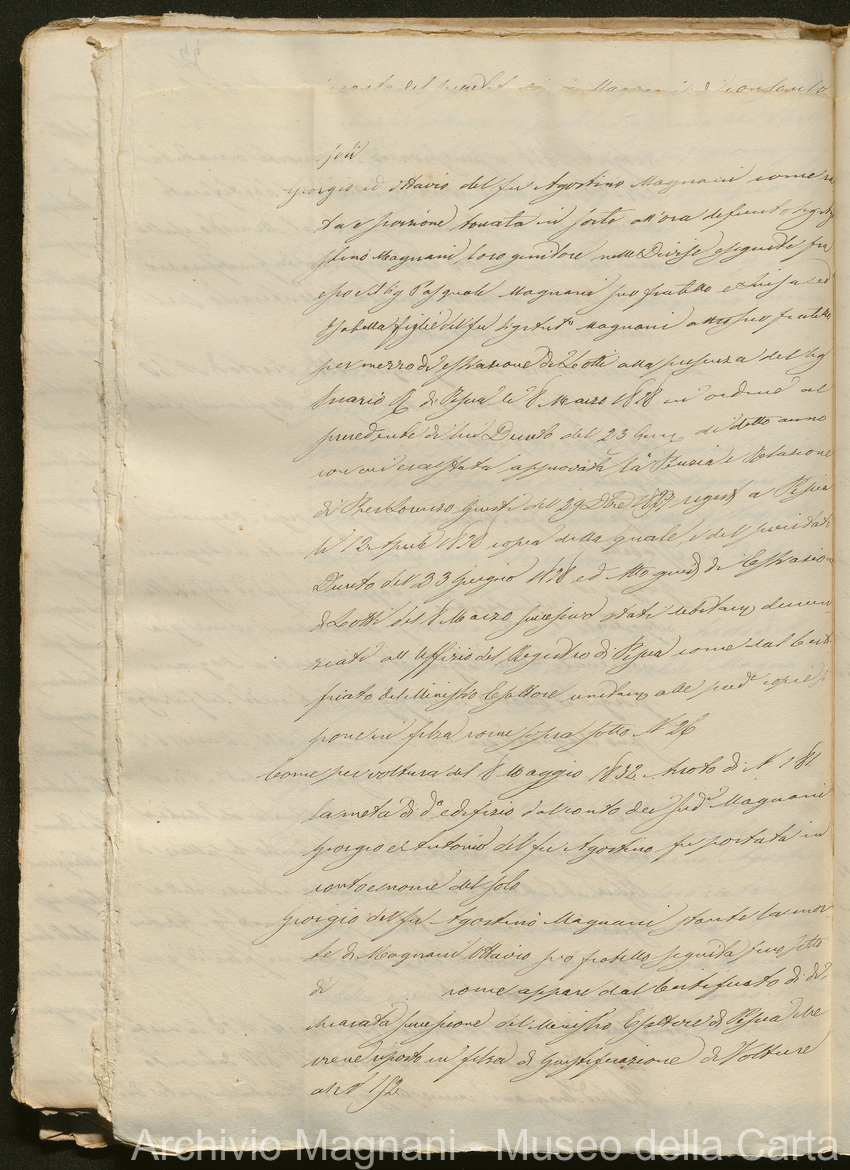 Giorgio ed Ottavio del fu Agostino Magnani come ra
ta e porzione toccata in sorte all'ora defunto Sig. Ago
stino Magnani loro genitore nelle Divise eseguite fra
esso e il Sig. Pasquale Magnani suo fratello e
Isabella figlie del fu Sig. Magnani altro suo fratello
per mezzo di estrazione di Lotti alla presenza del Sig.
Vicario R. di Pescia li 8 Marzo 1828 in ordine al
precedente di lui Decreto del 23 di detto anno
con cui era stata approvata la Perizia e Relazione
di Lorenzo Giusti del 29 Dbre 1827 regist a Pescia
li 12 Aprile 1828 copia della quale e del precitato
Decreto del 23 Giugno 1828 ed Atto di Estrazione
di Lotti del 8 Marzo stati denun
ziati all'Uffizio del Registro di Pescia come dal Certi
ficato del Ministro Esattore alle copie si
pone in filza come sopra sotto N. 26
Come per voltura del 8 Maggio 1832. Arroto di N. 181
la metà di do edifizio dal conto dei sudi Magnani
Giorgio e Antonio del fu Agostino fu portata in
conto e nome del solo
Giorgio del fu Agostino Magnani stante la mor
te di Magnani Ottavio suo fratello seguita sotto
di come appare dal Certificato di di
chiarata successione del Ministro Esattore di Pescia che
viene riposto in filza di Giustificazione di Volture
al N. 152
Archivio Magnani - Museo della Carta